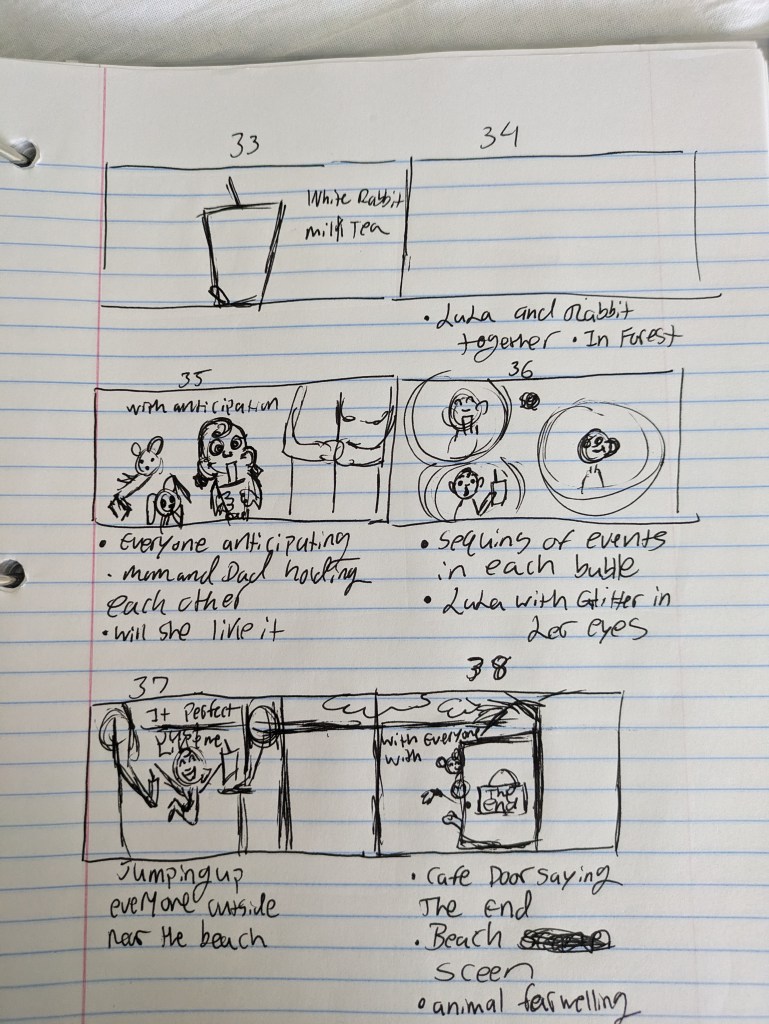 33
34
White Rabbit
Milk Tea
• LuLa and Rabbit
together • In Forest
35
36
with anticipation
• Everyone anticipating
• mom and Dad holding
each other
• will she like it
• Sequins of events
in each bubble
• LuLa with Glitter in
her eyes
37
38
It Perfect
With Everyone
with
The
End
Jumping up
everyone outside
near the beach
• Cafe Door saying
The end
• Beach
sceen
• animal farwelling